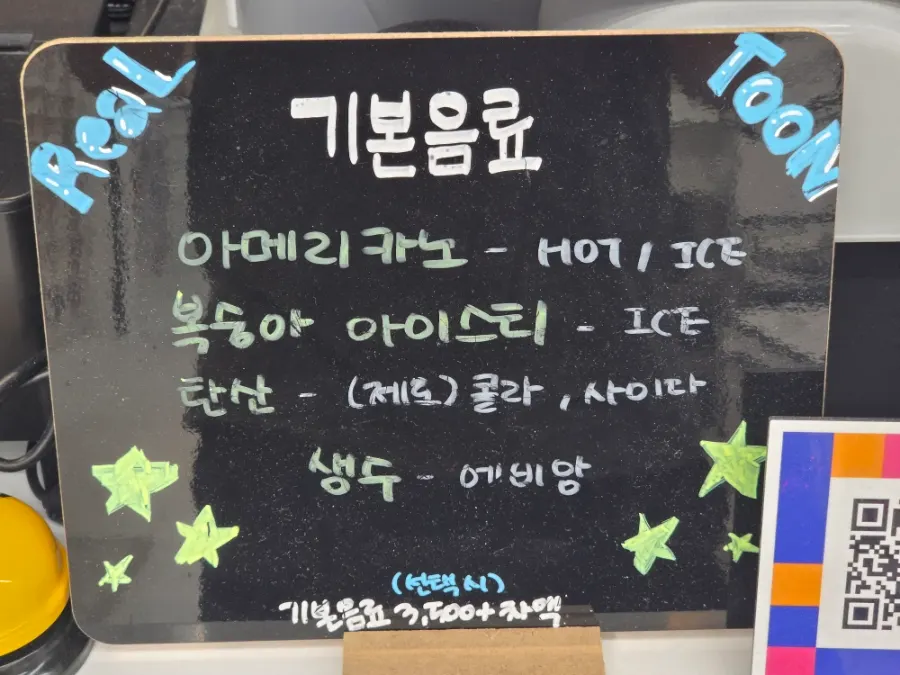 Real
TOON
기본음료
아메리카노 - HOT / ICE
복숭아 아이스티 - ICE
탄산 - (제로) 콜라, 사이다
생수 - 에비앙
(선택시)
기본음료 3,500+ 차액